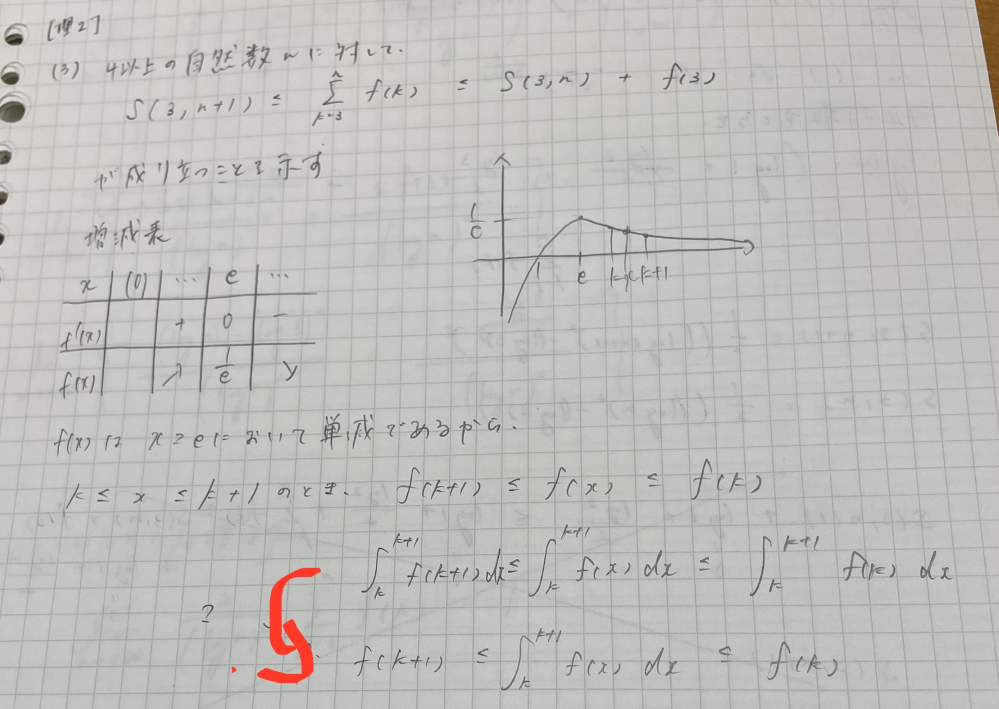 [理2]
(3) 4以上の自然数nに対して.
S(3, n+1) ≤ \sum_{k=3}^{n} f(k) ≤ S(3, n) + f(3)
が成り立つことを示す
増減表
x (0) … e …
f'(x) + 0 -
f(x) ↗ 1/e ↘
1/e
1 e k x k+1
f(x)は x≥eにおいて単減であるから.
k ≤ x ≤ k+1 のとき. f(k+1) ≤ f(x) ≤ f(k)
∫_k^{k+1} f(k+1) dx ≤ ∫_k^{k+1} f(x) dx ≤ ∫_k^{k+1} f(k) dx
?
f(k+1) ≤ ∫_k^{k+1} f(x) dx ≤ f(k)